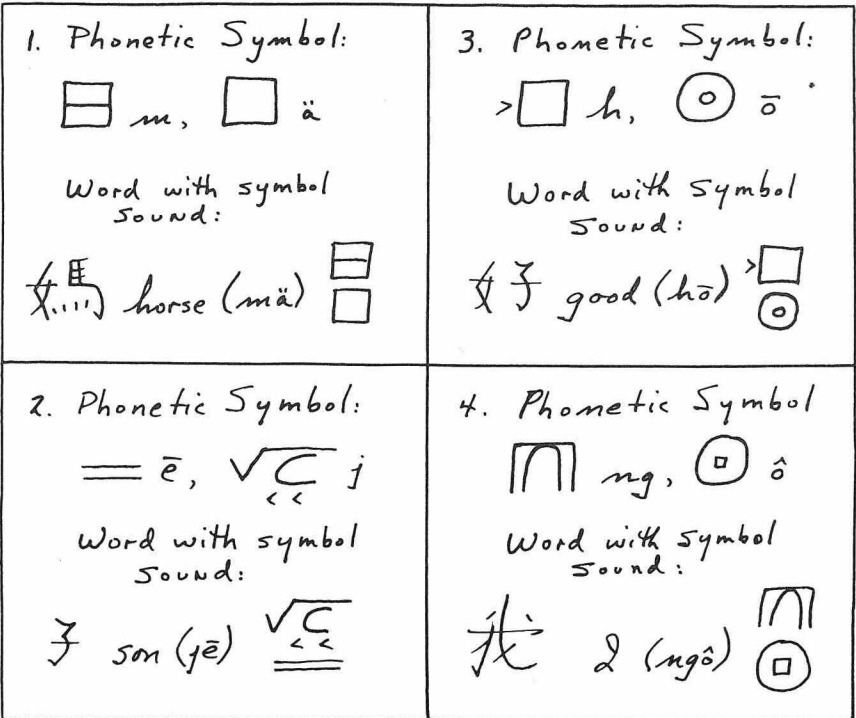 1. Phonetic Symbol:
m, ä
Word with symbol
sound:
媽 horse (mä)
2. Phonetic Symbol:
ē, j
Word with symbol
sound:
子 son (jē)
3. Phonetic Symbol:
h, ō
Word with symbol
sound:
好 good (hō)
4. Phonetic Symbol
ng, ô
Word with symbol
sound:
我 I (ngô)